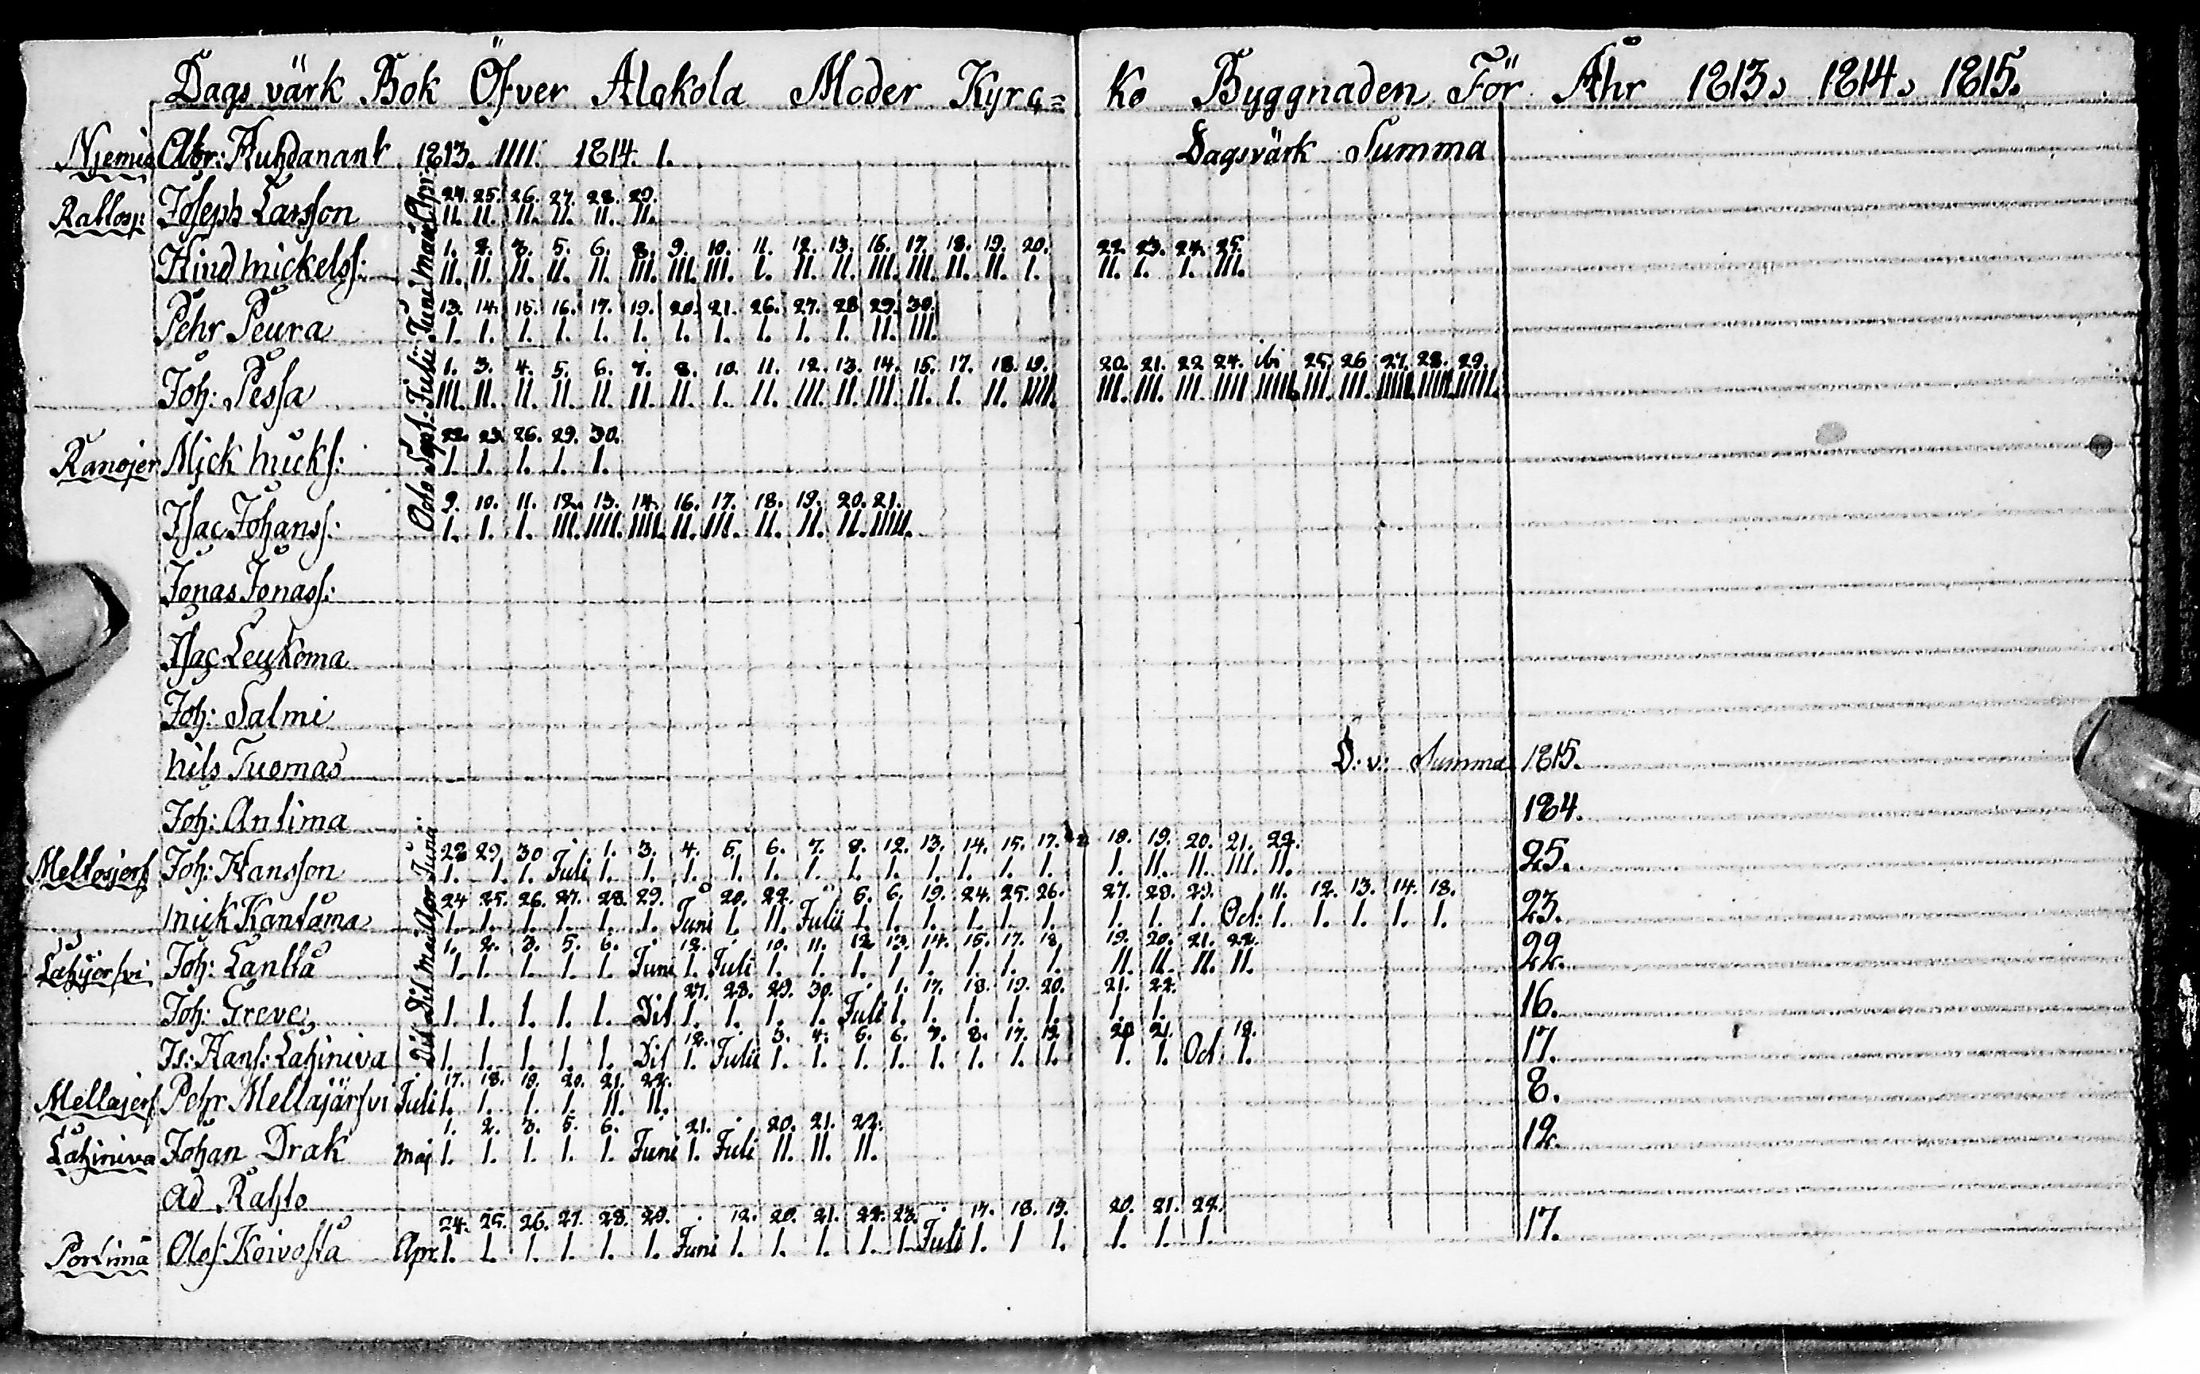 Dags värk Bok Öfver Alakola Moder Kyrc= ko Byggnaden För Åhr 1813. 1814. 1815.
Njemis Abr: Auhdanant 1813. IIII. 1814. I. Dagsvärk Summa
Rattosj: Joseph Larsson Apr: 24. 25. 26. 27. 28. 29.
II. II. II. II. II. II.
Hind mickelss: maÿ 1. 2. 3. 5. 6. 8. 9. 10. 11. 12. 13. 16. 17. 18. 19. 20. 22. 23. 24. 25.
II. II. II. II. II. III. III. III. I. II. II. III. III. II. II. I. II. I. I. III.
Pehr Peura Juni 13. 14. 15. 16. 17. 19. 20. 21. 26. 27. 28 29. 30.
I. I. I. I. I. I. I. I. I. I. I. II. III.
Joh: Pessa Julii 1. 3. 4. 5. 6. 7. 8. 10. 11. 12. 13. 14. 15. 17. 18. 19. 20. 21. 22 24. ibi 25 26 27. 28. 29.
III. II. II. II. II. II. II. I. II. III. II. III. II. I. II. IIII. III. III. III. IIII IIIII. III. III. IIIII. IIII. IIIII.
Ranojer Mick hucks: Sept: 22. 23. 26. 29. 30.
I. I. I. I. I.
Isac Johanss: Octo 9. 10. 11. 12. 13. 14. 16. 17. 18. 19. 20. 21.
I. I. I. III. IIII. IIII. II. III. II. II. II. IIIII.
Jonas Jonass:
Isac Leukoma
Joh: Salmi
Nils Tuomas D: v: Summa 1815.
Joh: Anlima 184.
Mellosjerf Joh: Hansson Juni 28 29. 30 Juli 1. 3. 4. 5. 6. 7. 8. 12. 13. 14. 15. 17. 18. 19. 20. 21. 22. 25.
I. I. I. I. I. I. I. I. I. I. I. I. I. I. I. I. II. II. III. II.
mick Kantama Apr 24 25. 26. 27. 28. 29. Juni 20. 22. Julii 5. 6. 19. 24. 25. 26. 27. 28. 29. Oct: 11. 12. 13. 14. 18. 23.
I. I. I. I. I. I. I. II. I. I. I. I. I. I. I. I. I. I. I. I. I. I.
Joh: Lantta maÿ 1. 2. 3. 5. 6. Juni 12. Juli 10. 11. 12 13. 14. 15. 17. 18. 19. 20. 21. 22. 22.
I. I. I. I. I. I. I. I. I. I. I. I. I. I. II. II. II. II.
Joh: Greve Dit I. I. I. I. I. Dit 27. 28. 29. 30. Juli 1. 17. 18. 19. 20. 21. 22. 16.
I. I. I. I. I. I. I. I. I. I. I.
Is: Hans: Lahiniva Dit I. I. I. I. I. Dit 12. Julii 3. 4. 5. 6. 7. 8. 17. 19. 20 21. Oct: 18. 17.
I. I. I. I. I. I. I. I. I. I. I. I.
Mellajerf Pehr Mellajärfvi Juli 17. 18. 19. 20. 21. 22. 8.
I. I. I. I. II. II.
Lahiniva Johan Drak maj 1. 2. 3. 5. 6. Juni 21. Juli 20. 21. 22. 12.
I. I. I. I. I. I. II. II. II.
Ad Rahto
Portima Olof Koivosta Apr. 24. 25. 26. 27. 28. 29. Juni 12. 20. 21. 22. 23. Juli 17. 18. 19. 20. 21. 22. 17.
I. I. I. I. I. I. I. I. I. I. I. I. I I. I. I. I.